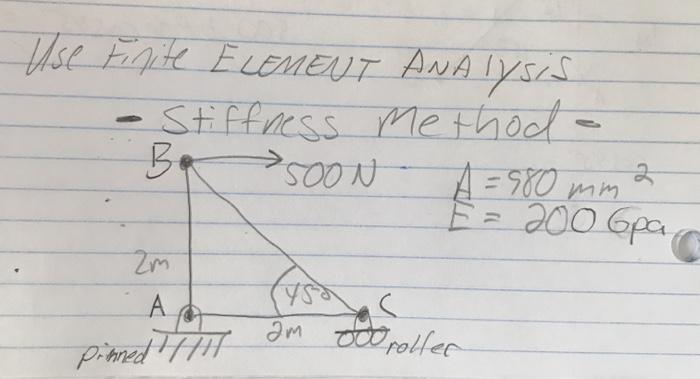 Use Finite ELEMENT ANAlysis
- Stiffness Method -
B
500 N
A = 980 mm²
E = 200 Gpa
2m
45°
A
C
2m
pinned
roller